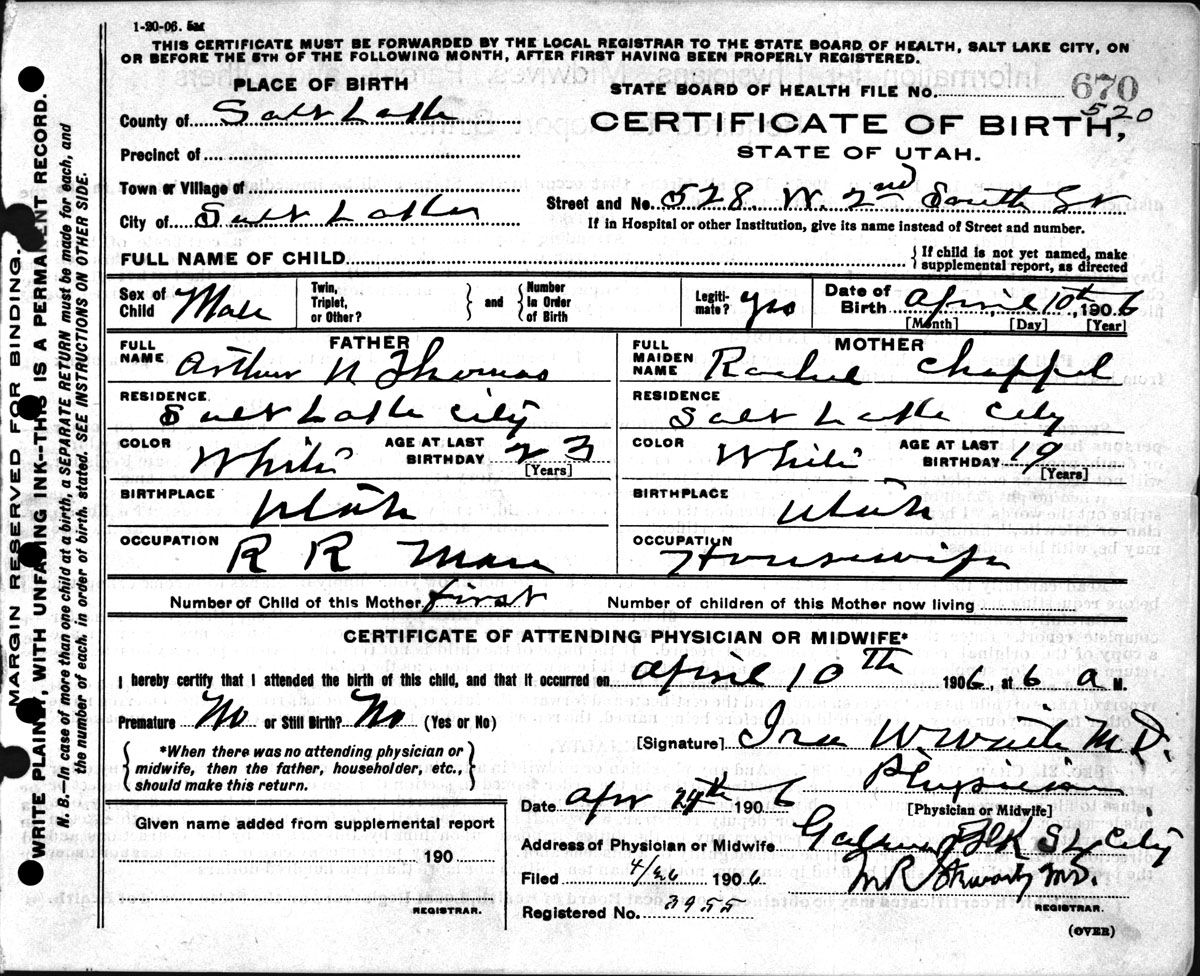 1-20-06. 5M
THIS CERTIFICATE MUST BE FORWARDED BY THE LOCAL REGISTRAR TO THE STATE BOARD OF HEALTH, SALT LAKE CITY, ON
OR BEFORE THE 5TH OF THE FOLLOWING MONTH, AFTER FIRST HAVING BEEN PROPERLY REGISTERED.
PLACE OF BIRTH
STATE BOARD OF HEALTH FILE No. 670
520
County of Salt Lake
CERTIFICATE OF BIRTH,
STATE OF UTAH.
Precinct of
Town or Village of
Street and No. 528 W 2nd South St
City of Salt Lake
If in Hospital or other Institution, give its name instead of Street and number.
FULL NAME OF CHILD
{ If child is not yet named, make
supplemental report, as directed
Sex of Child Male
Twin, Triplet, or Other? } and { Number in Order of Birth
Legitimate? yes
Date of Birth April 10th, 1906
[Month] [Day] [Year]
FATHER
FULL NAME Arthur N Thomas
RESIDENCE Salt Lake City
COLOR White AGE AT LAST BIRTHDAY 23
[Years]
BIRTHPLACE Utah
OCCUPATION R R Man
MOTHER
FULL MAIDEN NAME Rachel Chappel
RESIDENCE Salt Lake City
COLOR White AGE AT LAST BIRTHDAY 19
[Years]
BIRTHPLACE Utah
OCCUPATION Housewife
Number of Child of this Mother first Number of children of this Mother now living
CERTIFICATE OF ATTENDING PHYSICIAN OR MIDWIFE*
I hereby certify that I attended the birth of this child, and that it occurred on April 10th 1906, at 6 a M.
Premature No or Still Birth? No (Yes or No)
{ *When there was no attending physician or
midwife, then the father, householder, etc.,
should make this return. }
[Signature] Ira W Waite M.D.
Physician
[Physician or Midwife]
Date Apr 24th 1906
Given name added from supplemental report
190
REGISTRAR.
Address of Physician or Midwife Blk S L City
Filed 4/26 1906
M.D.
REGISTRAR.
Registered No. 3955
(OVER)
MARGIN RESERVED FOR BINDING.
WRITE PLAINLY, WITH UNFADING INK--THIS IS A PERMANENT RECORD.
N. B.--In case of more than one child at a birth, a SEPARATE RETURN must be made for each, and
the number of each, in order of birth, stated. SEE INSTRUCTIONS ON OTHER SIDE.